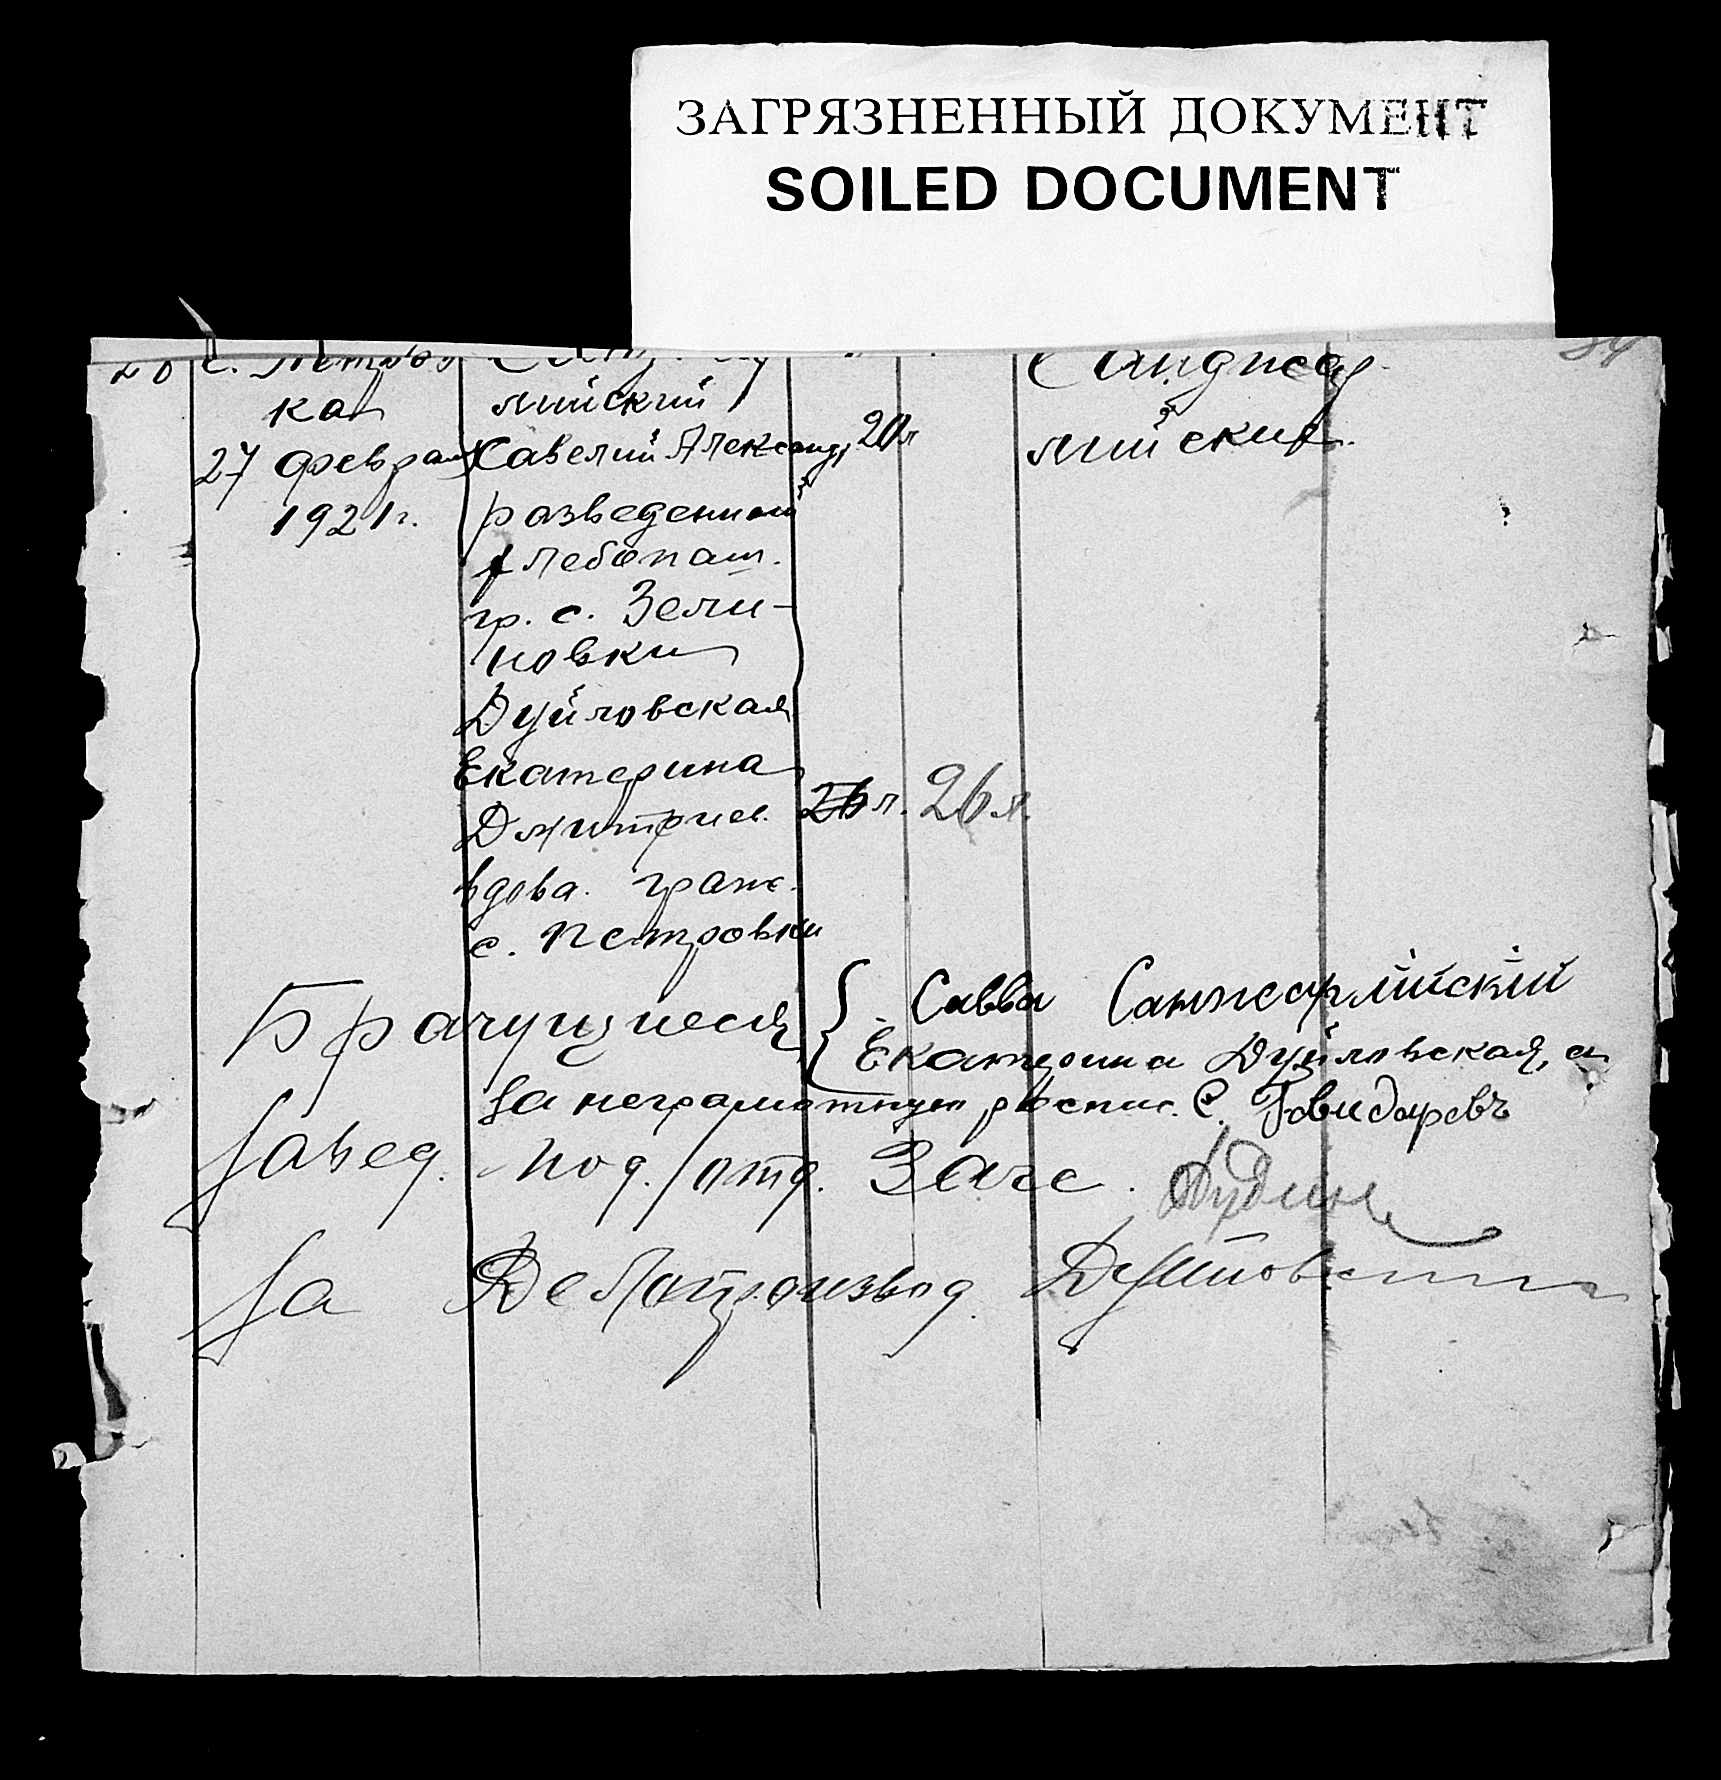 ЗАГРЯЗНЕННЫЙ ДОКУМЕНТ
SOILED DOCUMENT
20 с. Петров
ка
27 февраля
1921 г.
лийский
Савелий Александ.
разведенный
хлебопаш.
гр. с. Зели-
новки
20 л
Дуйловская
Екатерина
Дмитриев.
вдова. граж.
с. Петровки
26 л. 26 л.
Санджар
лийские.
Брачущиеся { Савва Санжарлійскій
Екатерина Дуйловская, а
за неграмотную роспис. С. Гайдаревъ
Завед. под/отд. Загс.
За Делопроизвод.